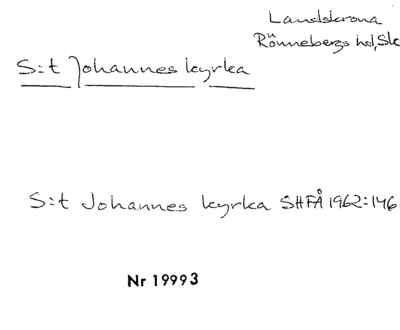 Landskrona
Rönnebergs hd, Sk
S:t Johannes kyrka
S:t Johannes kyrka SHFÅ 1962:146
Nr 19993